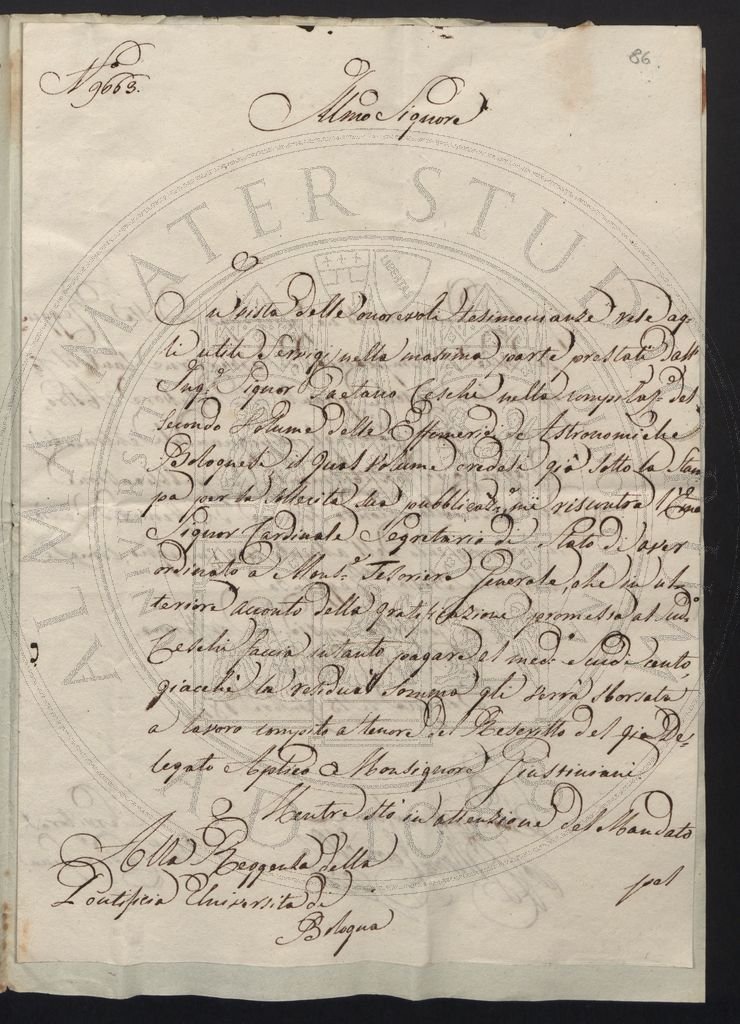 86
N.° 9663.
Illmo Signore
In vista delle onorevoli testimonianze rese ag-
li utili servigi nella massima parte prestati dall'
Ing.e Signor Gaetano Ceschi nella compilaz.e del
secondo Volume delle Effemeridi Astronomiche
Bolognesi il qual Volume credesi già sotto la Stam
pa per la sollecita sua pubblicaz.e mi riscontra l'Emo
Signor Cardinale Segretario di Stato di aver
ordinato a Mons.r Tesoriere Generale, che in ul-
teriore acconto della gratificazione promessa al sud.o
Ceschi faccia intanto pagare al med.o Scudi cento,
giacchè la residual somma gli verrà sborsata
a lavoro compito a tenore del Rescritto del già De-
legato Aplico Monsignore Giustiniani.
Mentre stò in attenzione del Mandato
pel
Alla Reggenza della
Pontificia Università di
Bologna
ALMA MATER STUD